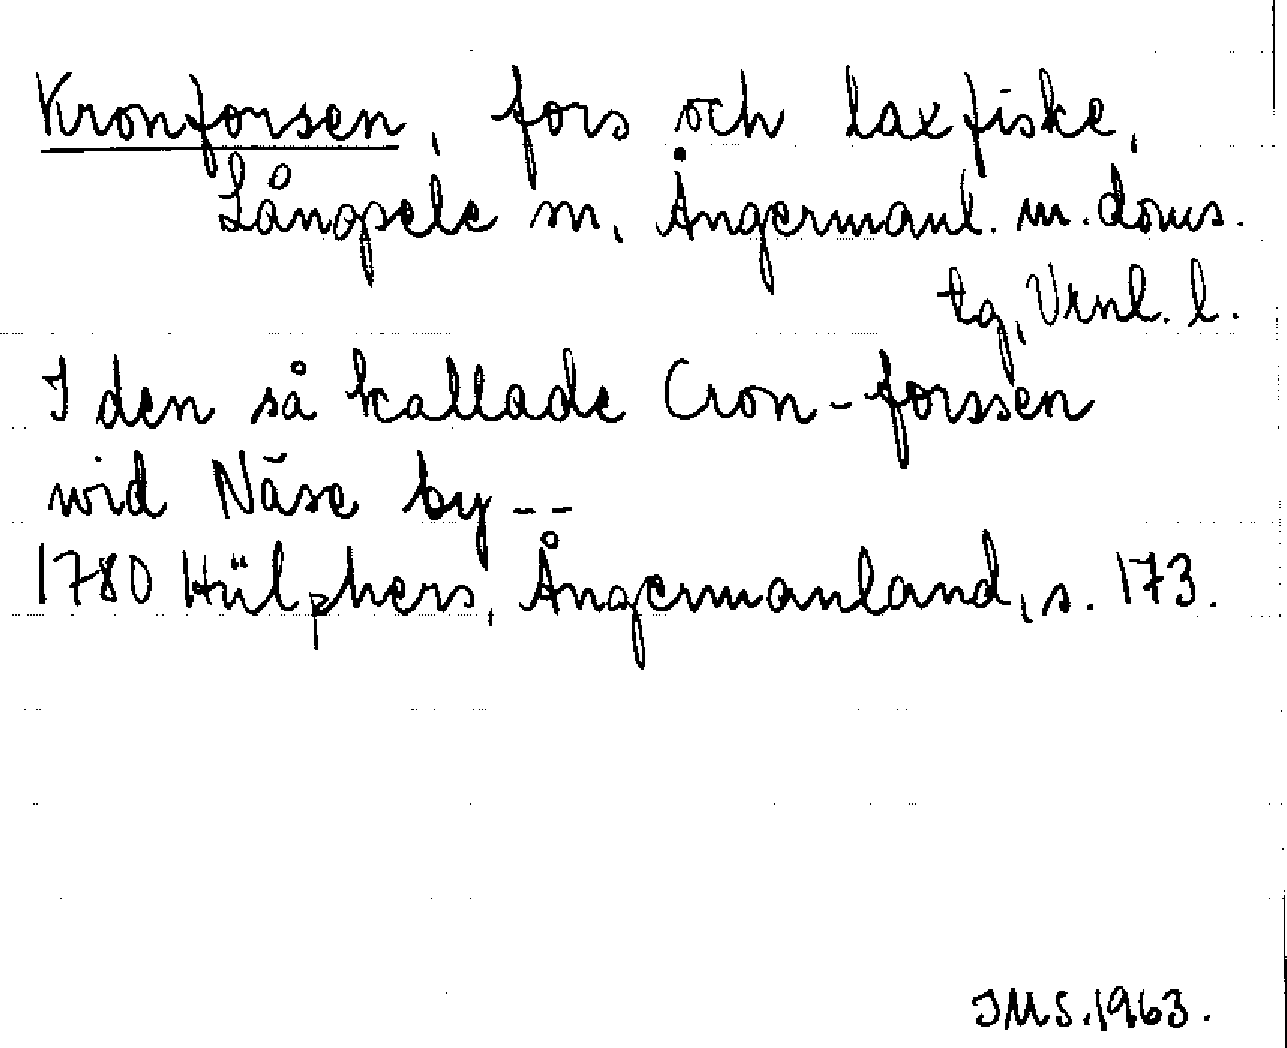 Kronforsen, fors och laxfiske,
Långsele sn, Ångermanl. m. doms.
tg, Vrnl. l.
I den så kallade Cron-forssen
wid Näse by --
1780 Hülphers, Ångermanland, s. 173.
JMS. 1963.